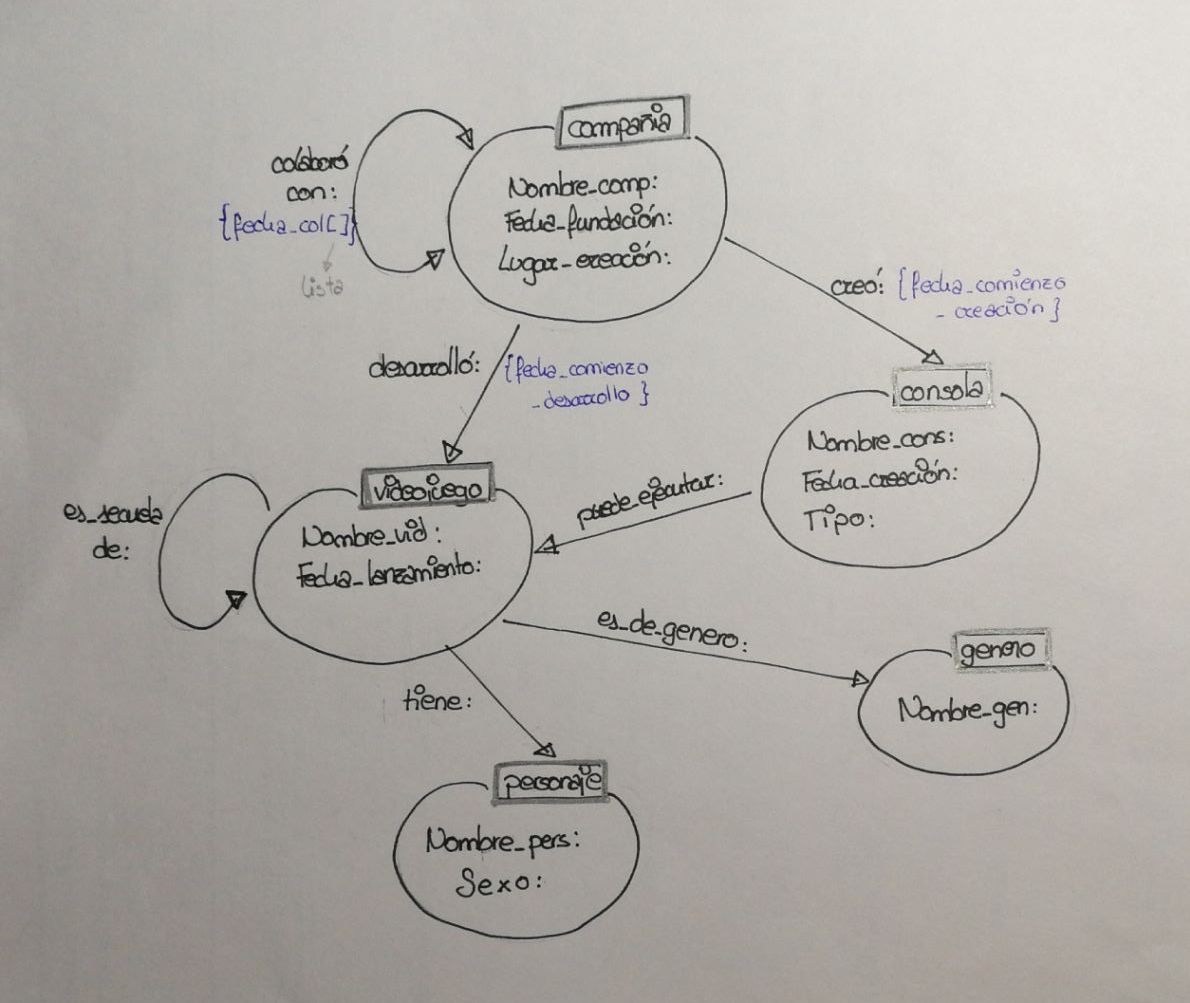 compañia
Nombre_comp:
Fecha_fundación:
Lugar_creación:
colaboró
con:
{fecha_col[]}
lista
creó: {fecha_comienzo
_creación}
desarrolló: {fecha_comienzo
_desarrollo}
consola
Nombre_cons:
Fecha_creación:
Tipo:
videojuego
Nombre_vid:
Fecha_lanzamiento:
es_secuela
de:
puede_ejecutar:
es_de_genero:
genero
Nombre_gen:
tiene:
personaje
Nombre_pers:
Sexo: